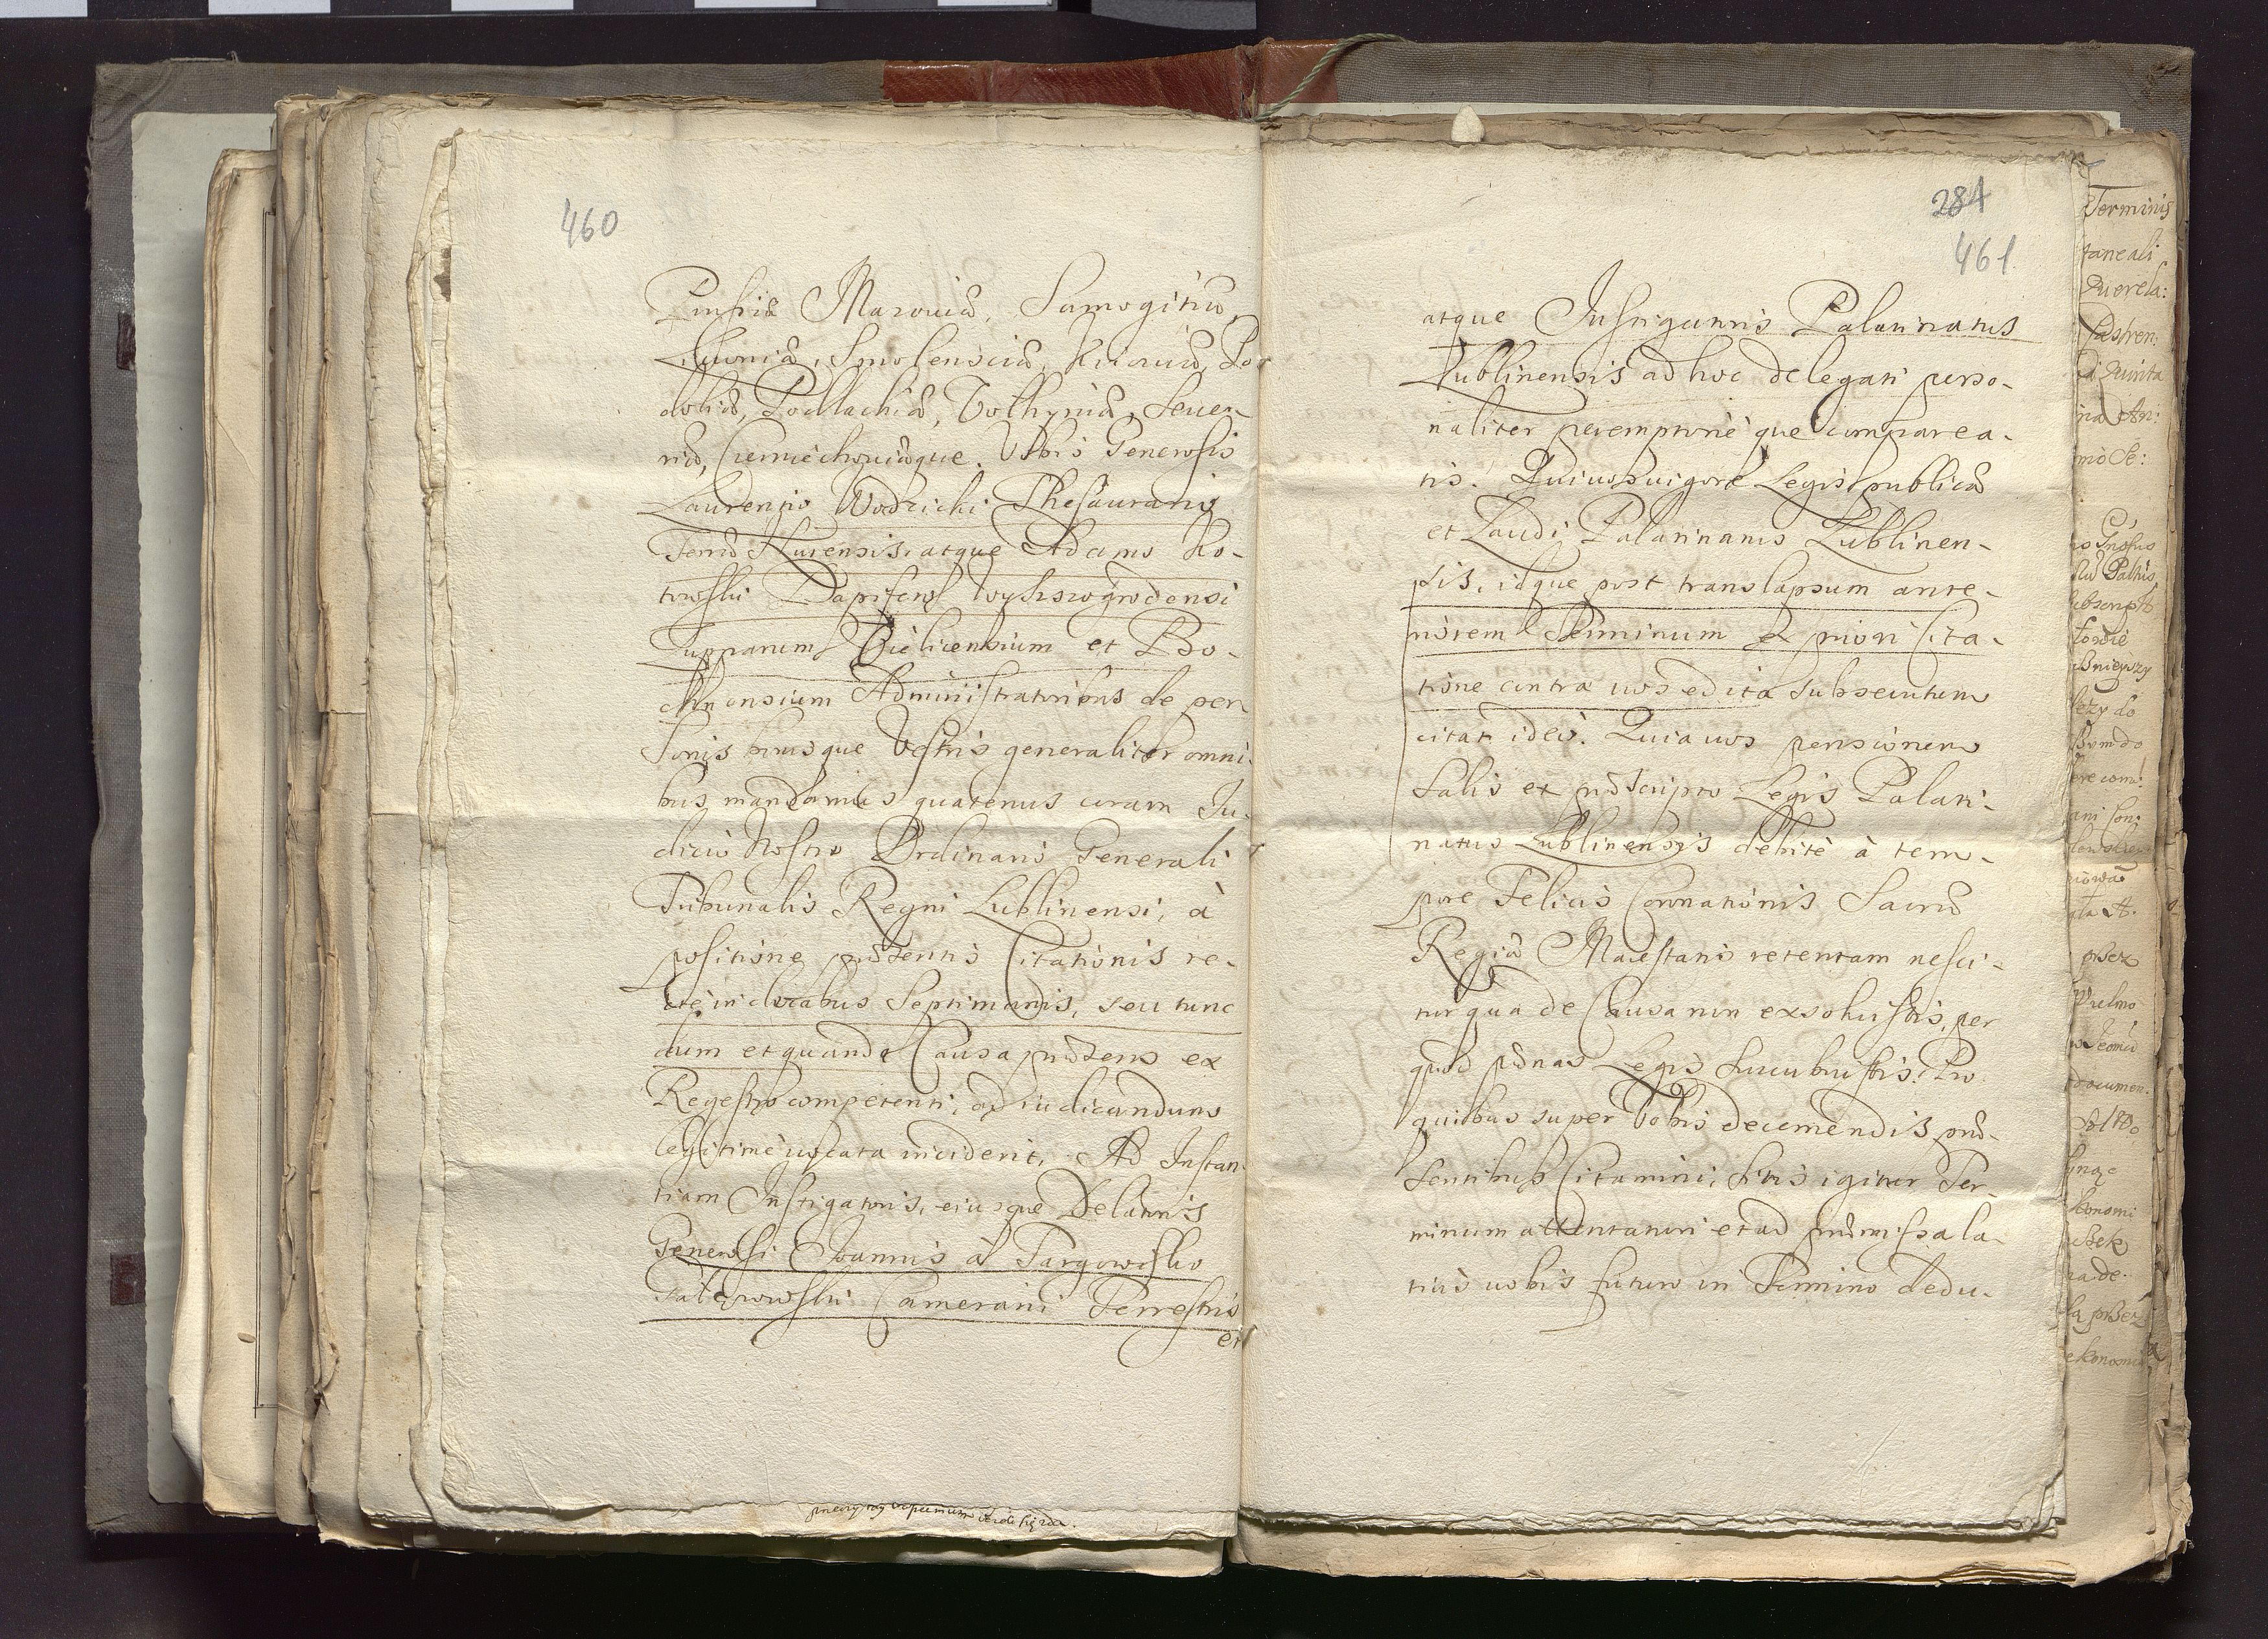 460
Prussiæ Masouiæ, Samogitiæ,
Liuoniæ, Smolensciæ, Kiiouiæ, Po
doliæ, Podlachiæ, Volhyniæ, Seuer-
niæ, Czerniechouiæque. Vobis Generosis
Laurentio Wodzicki Thesaurario
Terræ Nurensis, atque Adamo Ko-
towski Dapifero Wyssogrodensi
Zupparum Vielicensium et Bo-
chnensium Administratoribus de per
sonis bonisque Vestris generaliter omni-
bus mandamus quatenus coram Ju-
dicio Nostro Ordinario Generali
Tribunalis Regni Lublinensi, à
positione præsentis Citationis re-
cte in duabus Septimanis, seu tunc
dum et quando Causa præsens ex
Regestro competenti, ad iudicandum
legitimè vocata inciderit, Ad Instan-
tiam Instigatoris, eiusque Delatoris
Generosi Joannis à Targowisko
Camerarii Terrestris
et
284
461
atque Instigatoris Palatinatus
Lublinensis ad hoc delegati perso-
naliter peremptoriè que comparea-
tis. Qui vos vigore Legis publicæ
et Laudi Palatinatus Lublinen-
sis, idque post translapsum ante-
riorem Terminum ex priori Cita-
tione contra vos edita subsecutum
citat ideo. Quia vos pensionem
Salis ex præscripto Legis Palati-
natus Lublinensis debitè à tem-
pore Felicis Coronationis Sacræ
Regiæ Maiestatis retentam nesci-
tur qua de Causa non exsoluistis, per
quod pænas Legis succubuistis. Pro
quibus super Vobis decernendis præ-
sentibus Citamini, sitis igitur Ter-
minum attentaturi et ad præmissa la-
tiùs vobis futuro in Termino dedu-
Terminis
taneali
Querela:
Castren:
Quinta